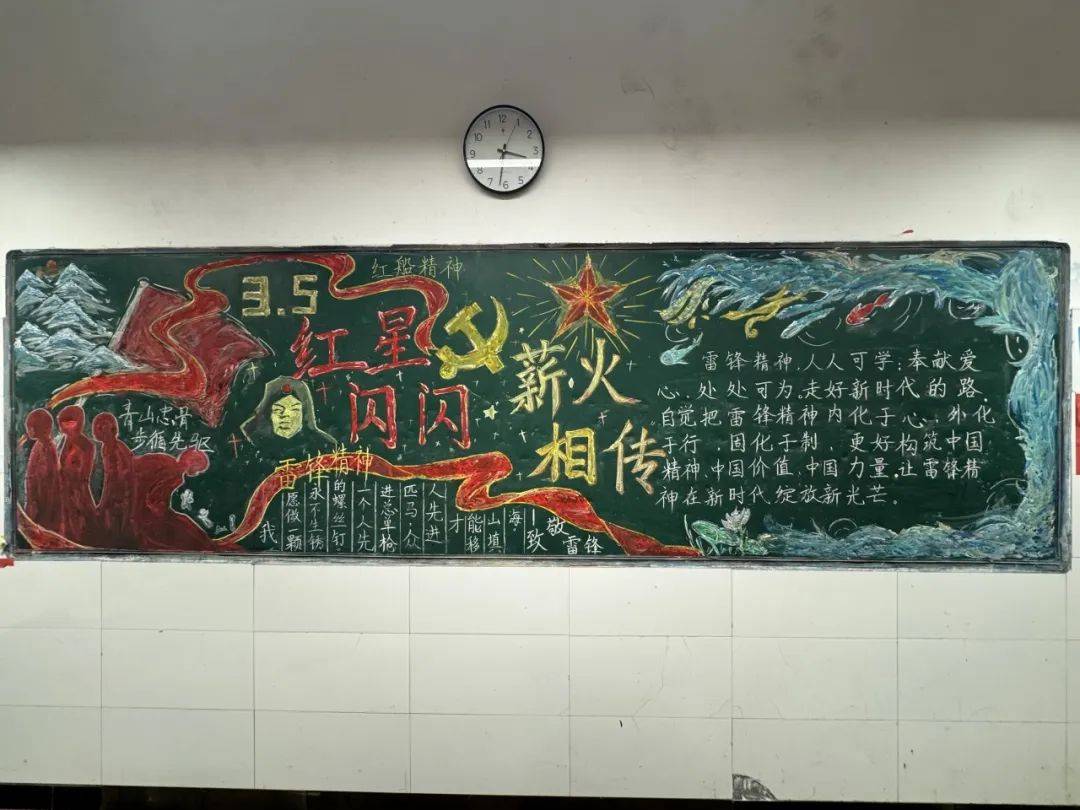 12 1 2 3 4 5 6 7 8 9 10 11
3.5
红船精神
红星
闪闪
薪火
相传
青山忠骨
步循先驱
雷锋精神
我
愿做一颗
永不生锈
的螺丝钉·
一个人先
进总单枪
匹马,众
人先进
才
能移
山填
海。
—致敬雷锋
雷锋精神,人人可学;奉献爱
心,处处可为,走好新时代的路,
自觉把雷锋精神内化于心,外化
于行,固化于制,更好构筑中国
精神,中国价值,中国力量,让雷锋精
神在新时代绽放新光芒。